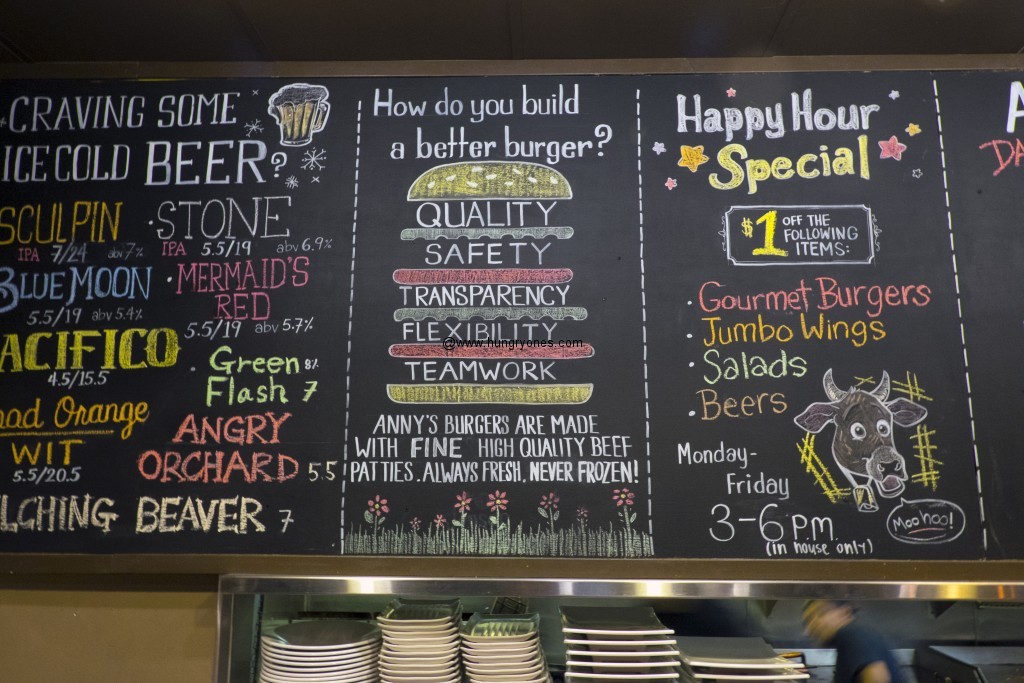 CRAVING SOME
ICE COLD BEER?
SCULPIN
IPA 7/24 abv 7%
STONE
IPA 5.5/19 abv 6.9%
BLUE MOON
5.5/19 abv 5.4%
MERMAID'S
RED
5.5/19 abv 5.7%
ACIFICO
4.5/15.5
Green 8%
Flash 7
ood Orange
WIT
5.5/20.5
ANGRY
ORCHARD 5.5
LCHING BEAVER 7
How do you build
a better burger?
QUALITY
SAFETY
TRANSPARENCY
FLEXIBILITY
@www.hungryones.com
TEAMWORK
ANNY'S BURGERS ARE MADE
WITH FINE HIGH QUALITY BEEF
PATTIES. ALWAYS FRESH, NEVER FROZEN!
Happy Hour
Special
$1 OFF THE
FOLLOWING
ITEMS:
· Gourmet Burgers
· Jumbo Wings
· Salads
· Beers
Monday-
Friday
3-6 P.M.
(in house only)
Moo hoo!
A
DA